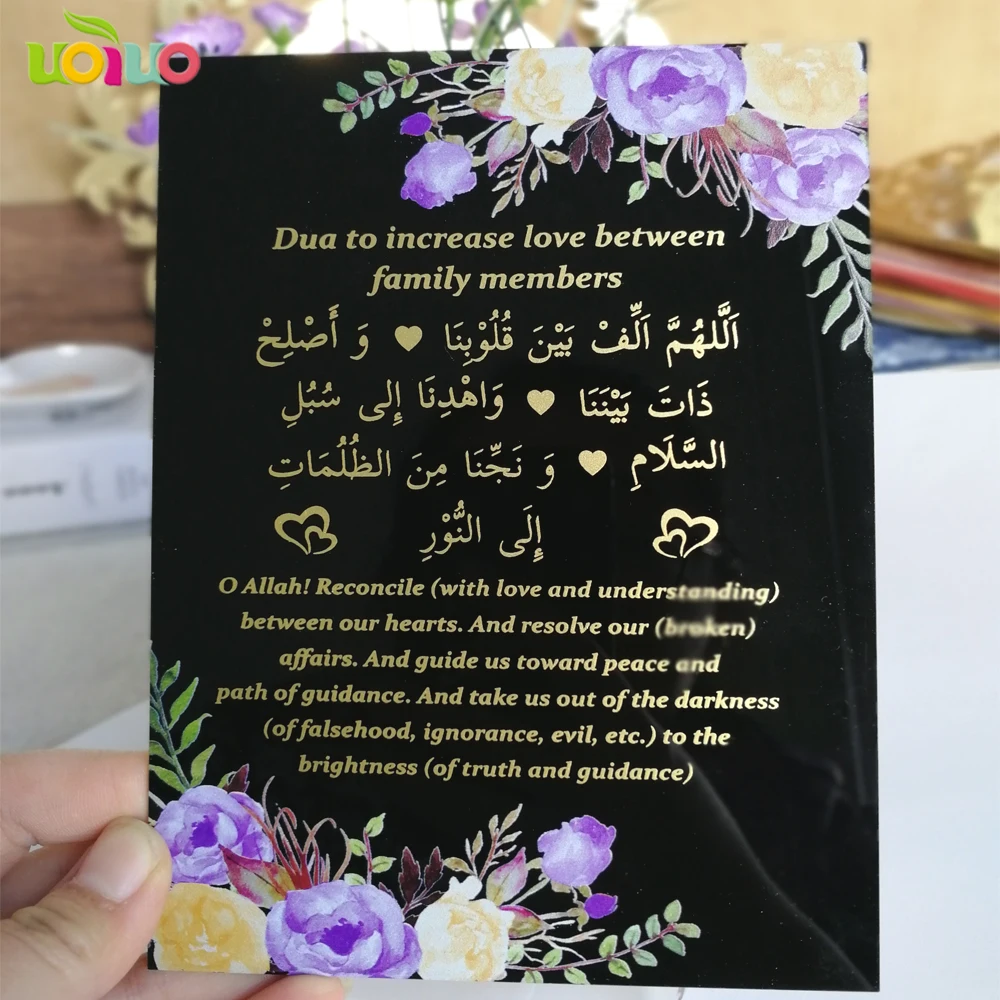 UOIUO
Dua to increase love between
family members
اَللّٰهُمَّ اَلِّفْ بَيْنَ قُلُوْبِنَا ♥ وَ أَصْلِحْ
ذَاتَ بَيْنَنَا ♥ وَاهْدِنَا إِلى سُبُلِ
السَّلَامِ ♥ وَ نَجِّنَا مِنَ الظُلُمَاتِ
إِلَى النُّوْرِ
O Allah! Reconcile (with love and understanding)
between our hearts. And resolve our (broken)
affairs. And guide us toward peace and
path of guidance. And take us out of the darkness
(of falsehood, ignorance, evil, etc.) to the
brightness (of truth and guidance)